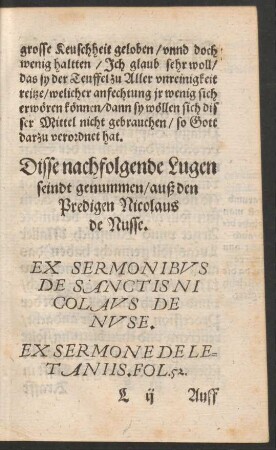 grosse Keuschheit geloben / vnnd doch
wenig haltten / Ich glaub sehr woll /
das sy der Teuffel zu Aller vnreinigkeit
reitze / welicher anfechtung jr wenig sich
erwören können / dann sy wöllen sich dis
ser Mittel nicht gebrauchen / so Gott
darzu verordnet hat.
Disse nachfolgende Lugen
seindt genummen / auß den
Predigen Nicolaus
de Nusse.
EX SERMONIBVS
DE SANCTIS NI
COLAVS DE
NVSE.
EX SERMONE DE LE-
TANIIS. FOL. 52.
L ij Auff